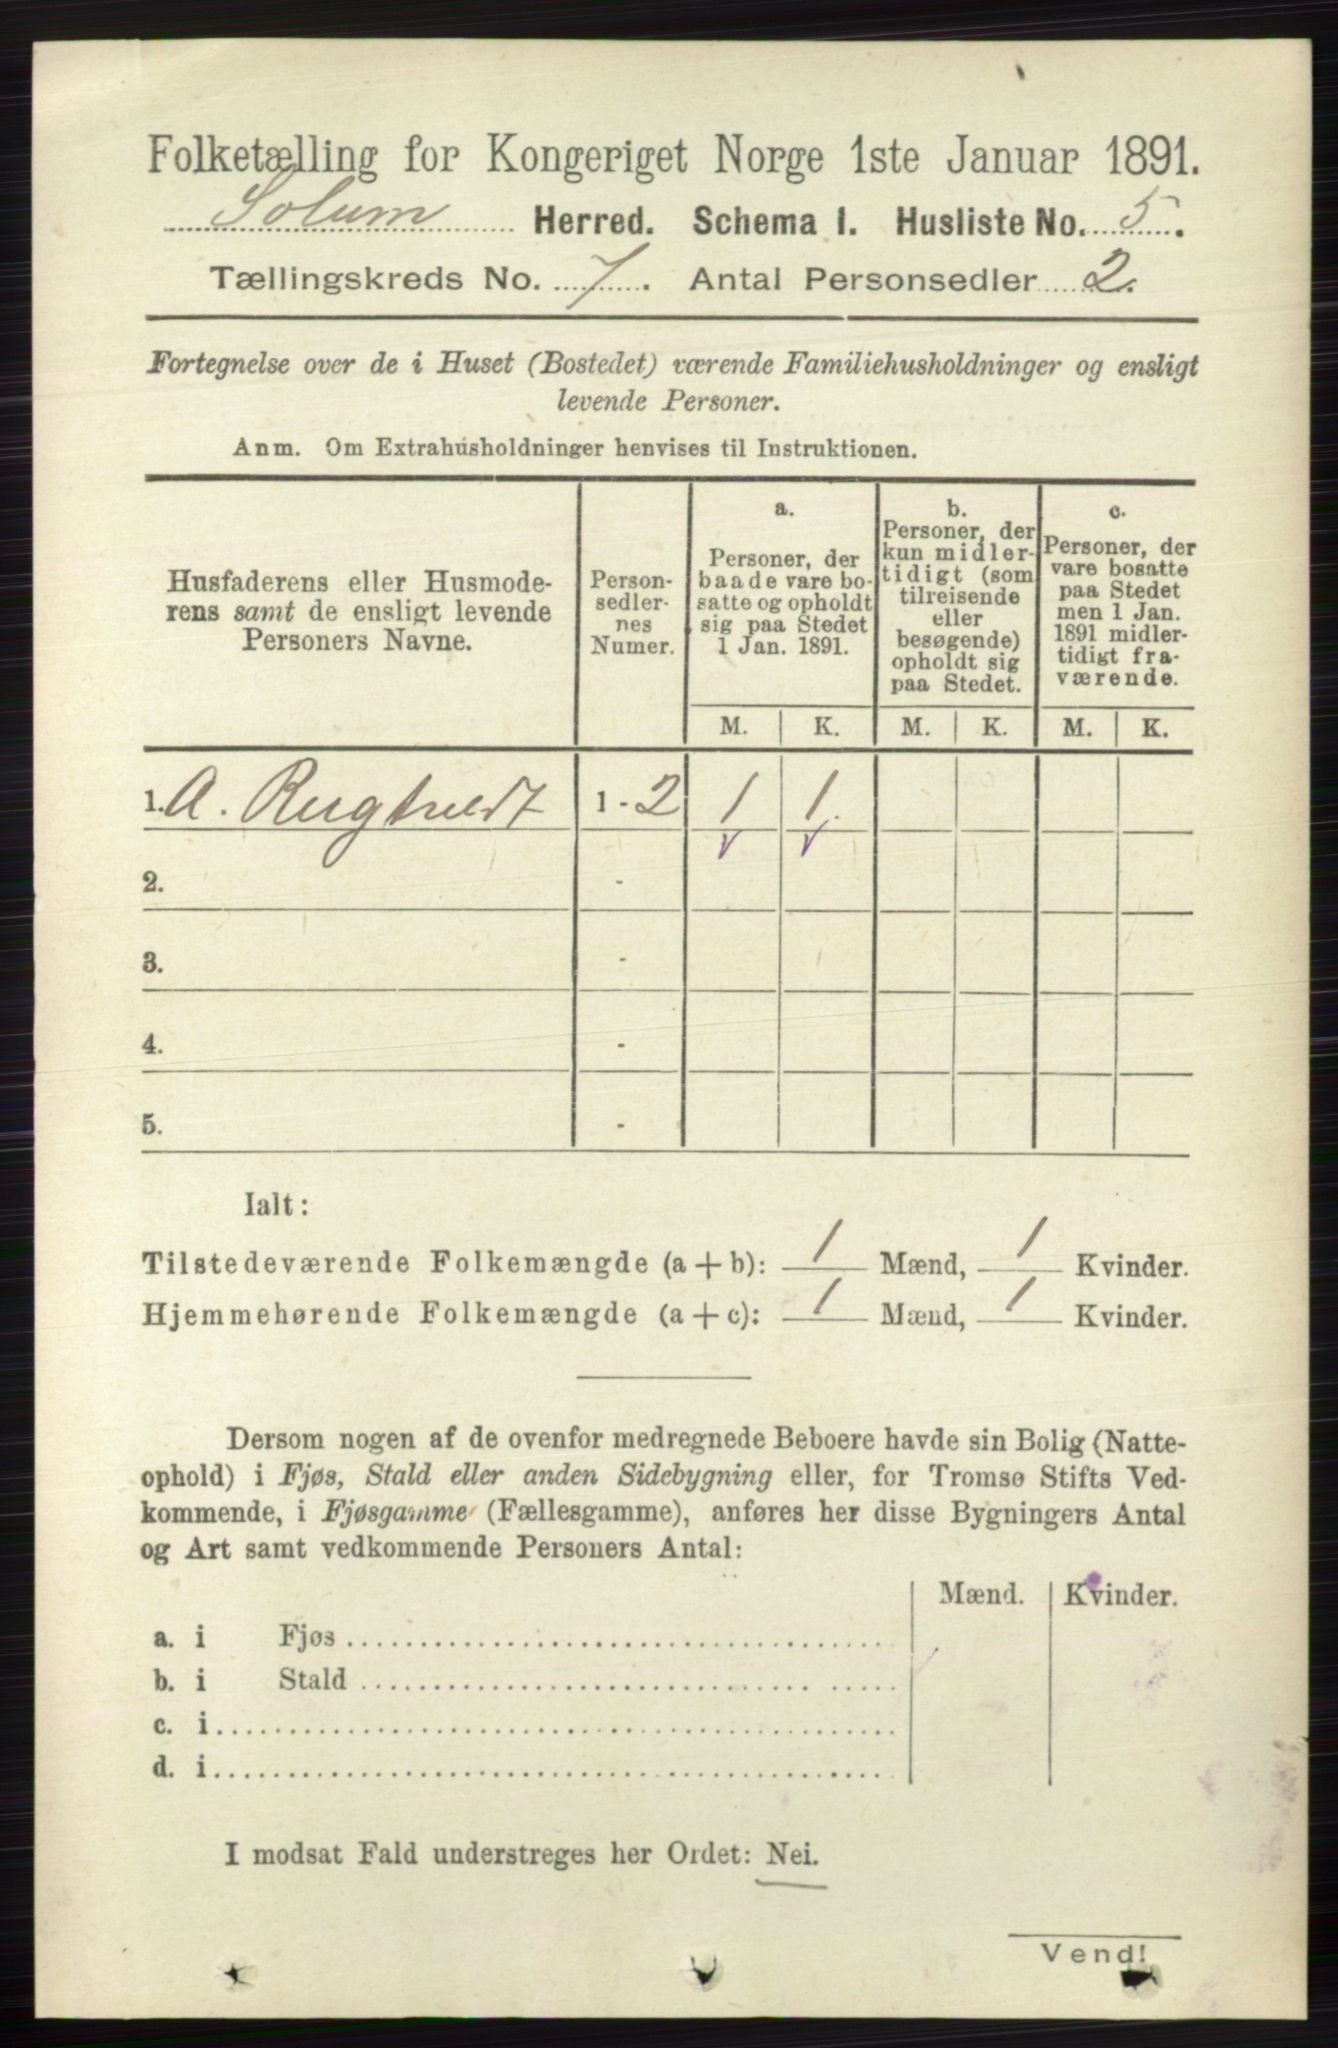 Folketælling for Kongeriget Norge 1ste Januar 1891.
Solum Herred. Schema I. Husliste No. 5.
Tællingskreds No. 7. Antal Personsedler 2.
Fortegnelse over de i Huset (Bostedet) værende Familiehusholdninger og ensligt
levende Personer.
Anm. Om Extrahusholdninger henvises til Instruktionen.
Husfaderens eller Husmode-
rens samt de ensligt levende
Personers Navne.
Person-
sedler-
nes
Numer.
a.
Personer, der
baade vare bo-
satte og opholdt
sig paa Stedet
1 Jan. 1891.
b.
Personer, der
kun midler-
tidigt (som
tilreisende
eller
besøgende)
opholdt sig
paa Stedet.
c.
Personer, der
vare bosatte
paa Stedet
men 1 Jan.
1891 midler-
tidigt fra-
værende.
M. K. M. K. M. K.
1. A. Rugtvedt 1 - 2 1 1.
2. -
3. -
4. -
5. -
Ialt:
Tilstedeværende Folkemængde (a + b): 1 Mænd, 1 Kvinder.
Hjemmehørende Folkemængde (a + c): 1 Mænd, 1 Kvinder.
Dersom nogen af de ovenfor medregnede Beboere havde sin Bolig (Natte-
ophold) i Fjøs, Stald eller anden Sidebygning eller, for Tromsø Stifts Ved-
kommende, i Fjøsgamme (Fællesgamme), anføres her disse Bygningers Antal
og Art samt vedkommende Personers Antal:
Mænd. Kvinder.
a. i Fjøs
b. i Stald
c. i
d. i
I modsat Fald understreges her Ordet: Nei.
Vend!